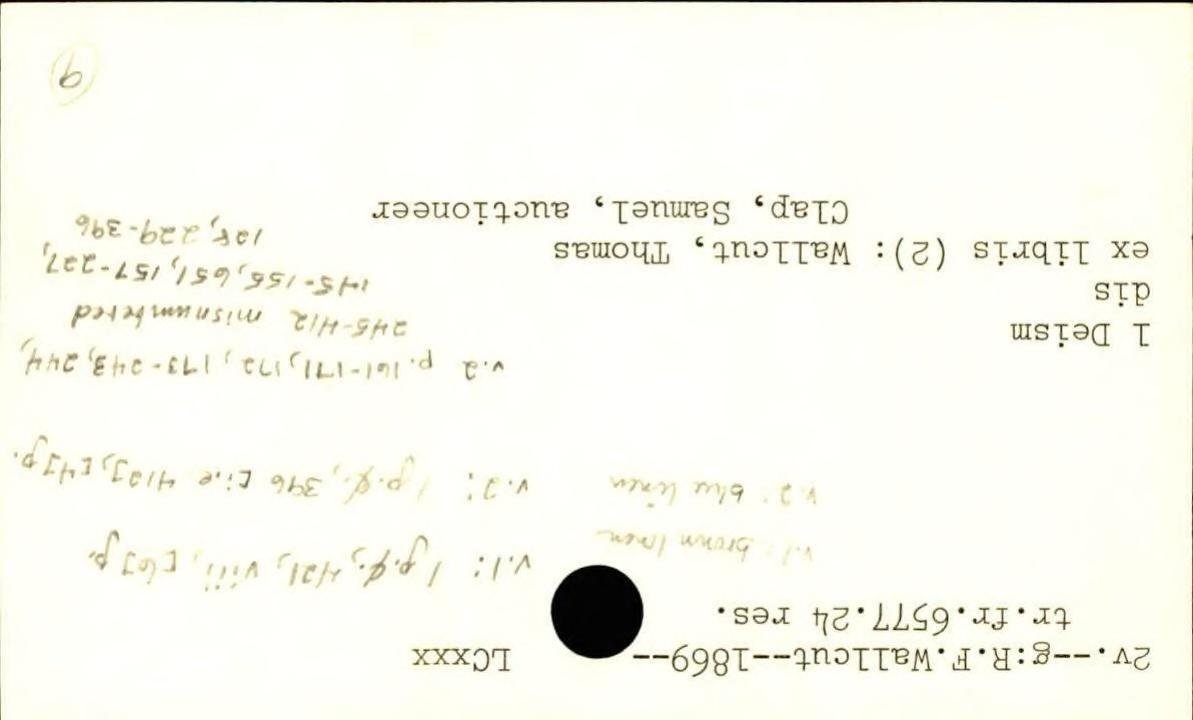 2v.--g:R.F.Wallcut--1869-- LCxxx
tr.fr.6577.24 res.
v.1: brown linen v.1: 1 p.ℓ., 421, viii, [6] p.
v.2: blue linen v.2: 1 p.ℓ., 396 [i.e. 412], [4] p.
v.2 p. 161-171, 172, 173-243, 244,
245-412 misnumbered
145-155, 651, 157-227,
128, 229-396
1 Deism
dis
ex libris (2): Wallcut, Thomas
Clap, Samuel, auctioneer
9